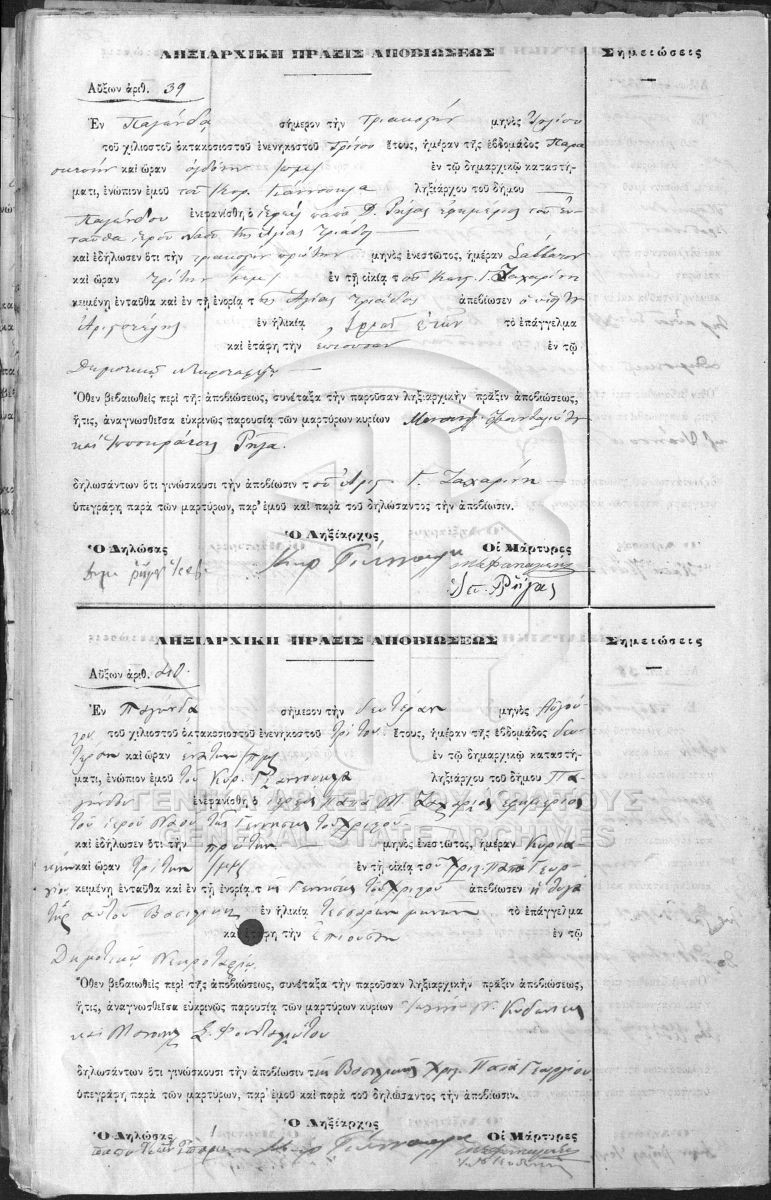 ΛΗΞΙΑΡΧΙΚΗ ΠΡΑΞΙΣ ΑΠΟΒΙΩΣΕΩΣ
Σημειώσεις
Αὔξων ἀριθ. 39
Ἐν Παγώνδᾳ σήμερον τὴν τριακοστὴν μηνὸς Ἰουλίου
τοῦ χιλιοστοῦ ὀκτακοσιοστοῦ ἐνενηκοστοῦ τρίτου ἔτους, ἡμέραν τῆς ἑβδομάδος Παρα
σκευὴν καὶ ὥραν ὀγδόην ἐν τῷ δημαρχικῷ καταστή-
ματι, ἐνώπιον ἐμοῦ τοῦ Κυρ. Γιάννουκλα ληξιάρχου τοῦ δήμου
Παγώνδου ἐνεφανίσθη ὁ ἱερεὺς παπᾶ Δ. Ρήγας ἐφημέριος τοῦ ἐν
ταῦθα ἱεροῦ Ναοῦ τῆς Ἁγίας Τριάδος
καὶ ἐδήλωσεν ὅτι τὴν τριακοστὴν πρώτην μηνὸς ἐνεστῶτος, ἡμέραν Σάββατον
καὶ ὥραν τρίτην ἐν τῇ οἰκίᾳ τοῦ Γ. Ζαχαρίου
κειμένῃ ἐνταῦθα καὶ ἐν τῇ ἐνορίᾳ τῆς Ἁγίας Τριάδος ἀπεβίωσεν ὁ υἱὸς
Ἀριστοτέλης ἐν ἡλικίᾳ ἐτῶν τὸ ἐπάγγελμα
καὶ ἐτάφη τὴν ἐπιοῦσαν ἐν τῷ
Δημοτικῷ Νεκροταφείῳ
Ὅθεν βεβαιωθεὶς περὶ τῆς ἀποβιώσεως, συνέταξα τὴν παροῦσαν ληξιαρχικὴν πρᾶξιν ἀποβιώσεως,
ἥτις, ἀναγνωσθεῖσα εὐκρινῶς παρουσίᾳ τῶν μαρτύρων κυρίων
καὶ Ἱπποκράτους Ρήγα.
δηλωσάντων ὅτι γινώσκουσι τὴν ἀποβίωσιν τοῦ Ἀρις. Γ. Ζαχαρίου
ὑπεγράφη παρὰ τῶν μαρτύρων, παρ' ἐμοῦ καὶ παρὰ τοῦ δηλώσαντος τὴν ἀποβίωσιν.
Ὁ Ληξίαρχος
Ὁ Δηλώσας Οἱ Μάρτυρες
Κυρ Γιάννουκλα
Ἱπ. Ρήγας
ΛΗΞΙΑΡΧΙΚΗ ΠΡΑΞΙΣ ΑΠΟΒΙΩΣΕΩΣ
Σημειώσεις
Αὔξων ἀριθ. 40.
Ἐν Παγώνδᾳ σήμερον τὴν δευτέραν μηνὸς Αὐγού
στου τοῦ χιλιοστοῦ ὀκτακοσιοστοῦ ἐνενηκοστοῦ τρίτου ἔτους, ἡμέραν τῆς ἑβδομάδος Δευ
τέραν καὶ ὥραν ἐνάτην πμ ἐν τῷ δημαρχικῷ καταστή-
ματι, ἐνώπιον ἐμοῦ τοῦ Κυρ. Γιαννουκλα ληξιάρχου τοῦ δήμου Πα
γώνδου ἐνεφανίσθη ὁ ἱερεὺς Παπᾶ Μ. Ζαχαρίας ἐφημέριος
τοῦ ἱεροῦ Ναοῦ τῆς Γεννήσεως τοῦ Χριστοῦ
καὶ ἐδήλωσεν ὅτι τὴν πρώτην μηνὸς ἐνεστῶτος, ἡμέραν Κυρια
κὴν καὶ ὥραν τρίτην μμ ἐν τῇ οἰκίᾳ τοῦ Χρις. Παπᾶ Γεωρ
γίου κειμένῃ ἐνταῦθα καὶ ἐν τῇ ἐνορίᾳ τῆς Γεννήσεως τοῦ Χριστοῦ ἀπεβίωσεν ἡ θυγά
τηρ αὐτοῦ Βασιλικὴ ἐν ἡλικίᾳ τεσσάρων μηνῶν τὸ ἐπάγγελμα
καὶ ἐτάφη τὴν ἐπιοῦσαν ἐν τῷ
Δημοτικῷ Νεκροταφείῳ.
Ὅθεν βεβαιωθεὶς περὶ τῆς ἀποβιώσεως, συνέταξα τὴν παροῦσαν ληξιαρχικὴν πρᾶξιν ἀποβιώσεως,
ἥτις, ἀναγνωσθεῖσα εὐκρινῶς παρουσίᾳ τῶν μαρτύρων κυρίων
καὶ
δηλωσάντων ὅτι γινώσκουσι τὴν ἀποβίωσιν τῆς Βασιλικῆς Χρις. Παπᾶ Γεωργίου
ὑπεγράφη παρὰ τῶν μαρτύρων, παρ' ἐμοῦ καὶ παρὰ τοῦ δηλώσαντος τὴν ἀποβίωσιν.
Ὁ Ληξίαρχος
Ὁ Δηλώσας Οἱ Μάρτυρες
Κυρ Γιάννουκλα
ΓΕΝΙΚΑ ΑΡΧΕΙΑ ΤΟΥ ΚΡΑΤΟΥΣ
GENERAL STATE ARCHIVES